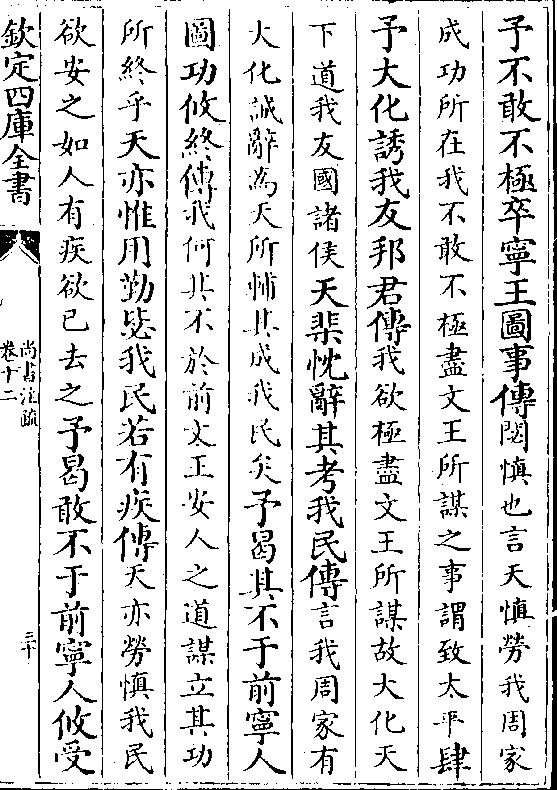 予不敢不極卒寧王圖事傳閟慎也言天慎勞我周家
成功所在我不敢不極盡文王所謀之事謂致太平肆
予大化誘我友邦君傳我欲極盡文王所謀故大化天
下道我友國諸侯天棐忱辭其考我民傳言我周家有
大化誠辭為天所輔其成我民矣予曷其不于前寧人
圖功攸終傳我何其不於前文王安人之道謀立其功
所終乎天亦惟用勤毖我民若有疾傳天亦勞慎我民
欲安之如人有疾欲已去之予曷敢不于前寧人攸受
欽定四庫全書
尚書注疏
卷十二
三十